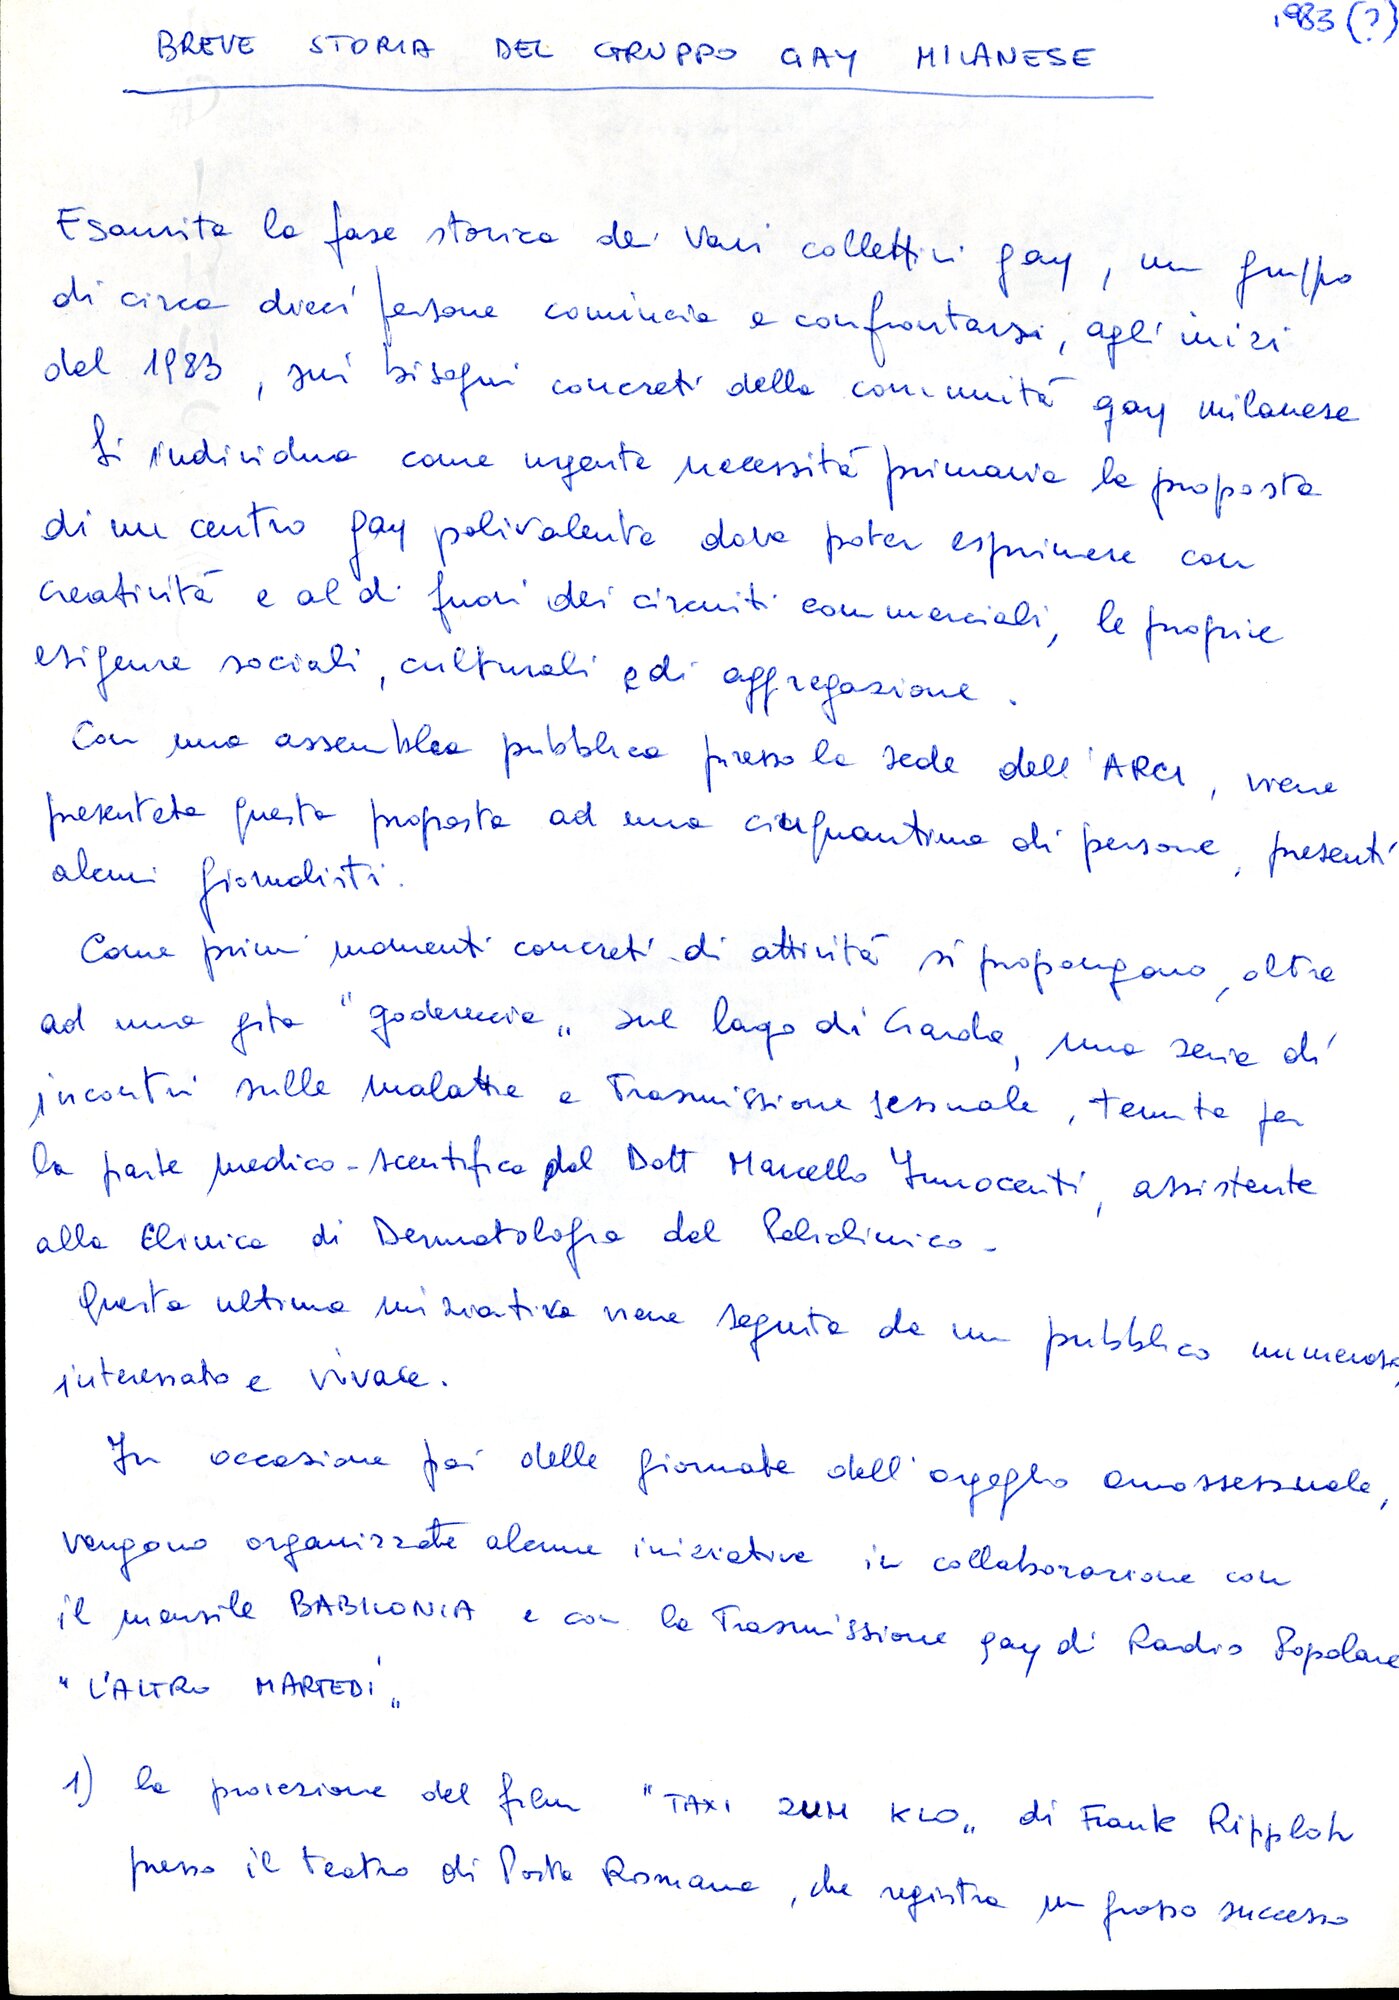 1983 (?)
BREVE STORIA DEL GRUPPO GAY MILANESE
Esaurita la fase storica dei vari collettivi gay, un gruppo
di circa dieci persone comincia a confrontarsi, agli inizi
del 1983, sui bisogni concreti della comunità gay milanese
Si individua come urgente necessità primaria la proposta
di un centro gay polivalente dove poter esprimere con
creatività e al di fuori dei circuiti commerciali, le proprie
esigenze sociali, culturali e di aggregazione.
Con una assemblea pubblica presso la sede dell'ARCI, viene
presentata questa proposta ad una cinquantina di persone, presenti
alcuni giornalisti.
Come primi momenti concreti di attività si propongono, oltre
ad una gita "godereccia" sul lago di Garda, una serie di
incontri sulle malattie a trasmissione sessuale, tenute per
la parte medico-scentifica dal Dott Marcello Innocenti, assistente
alla Clinica di Dermatologia del Policlinico-
Questa ultima iniziativa viene seguita da un pubblico numeroso,
interessato e vivace.
In occasione poi delle giornate dell'orgoglio omossessuale,
vengono organizzate alcune iniziative in collaborazione con
il mensile BABILONIA e con la trasmissione gay di Radio Popolare
"L'ALTRO MARTEDÌ"
1) la proiezione del film "TAXI ZUM KLO" di Frank Ripploh
presso il teatro di Porta Romana, che registra un grosso successo